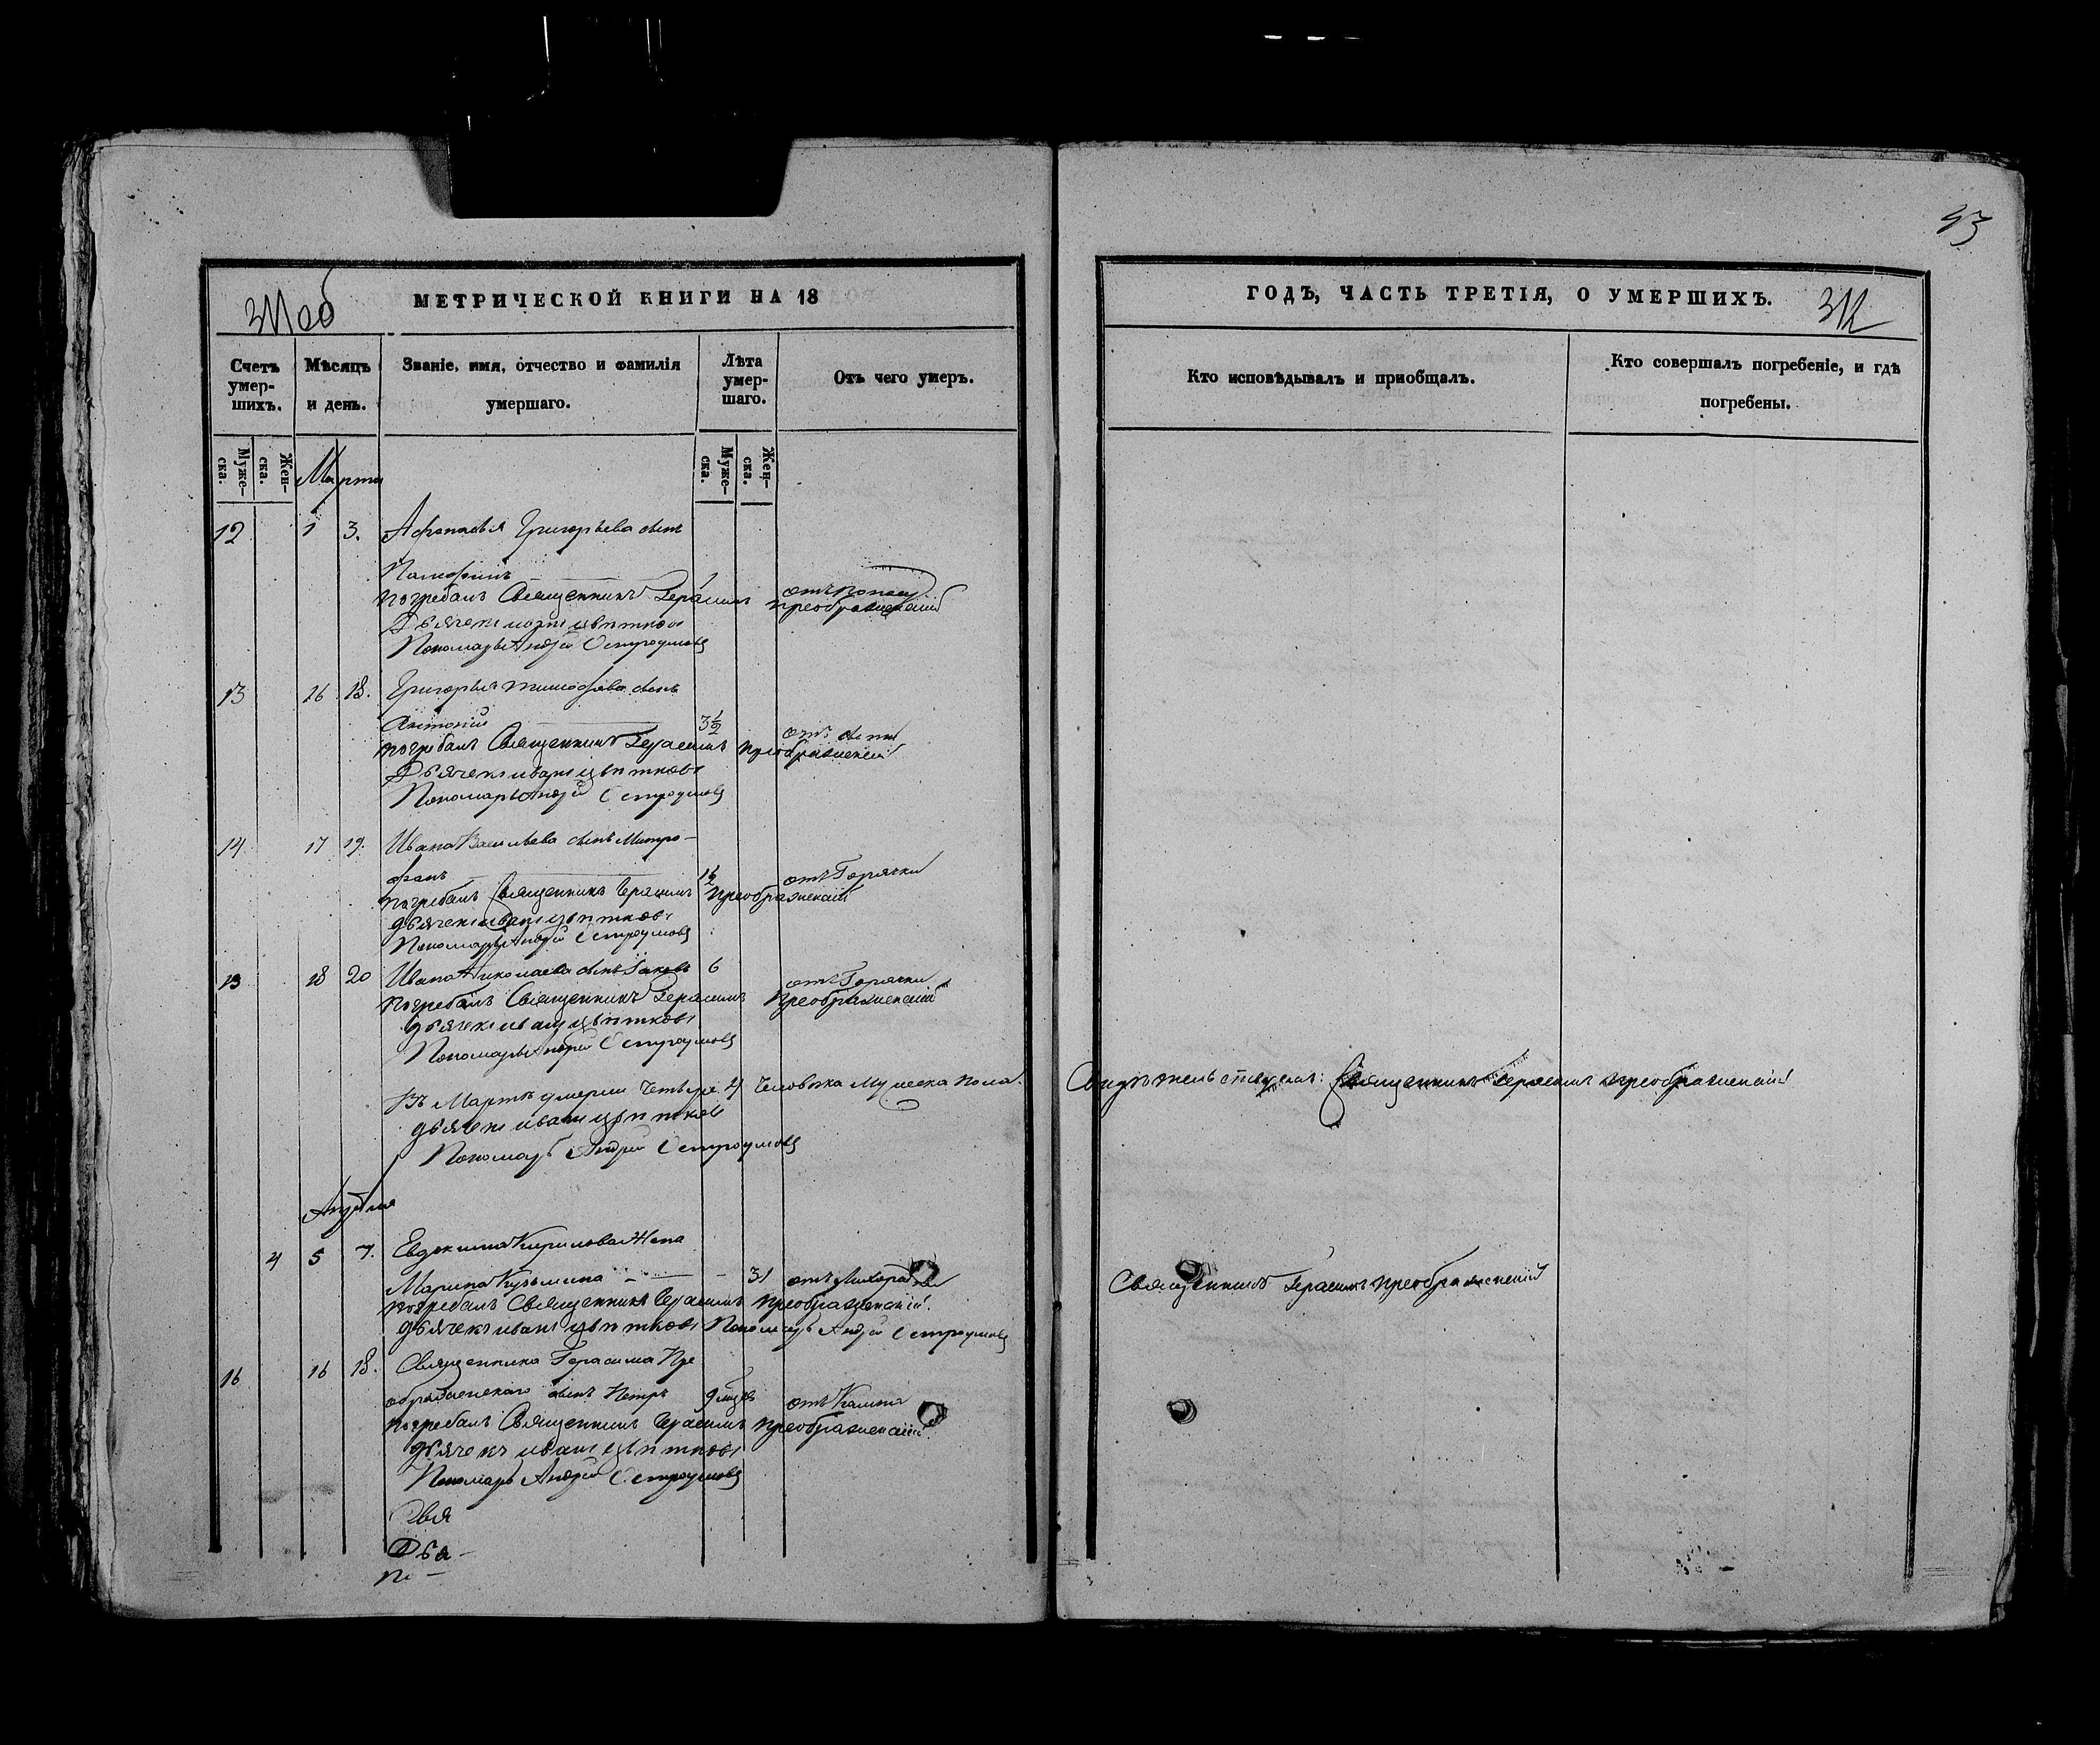 43
311 об
МЕТРИЧЕСКОЙ КНИГИ НА 18
ГОДЪ, ЧАСТЬ ТРЕТІЯ, О УМЕРШИХЪ.
312
Счетъ умер-шихъ.
Мѣсяцъ и день.
Званіе, имя, отчество и фамилія умершаго.
Лѣта умер-шаго.
Отъ чего умеръ.
Кто исповѣдывалъ и пріобщалъ.
Кто совершалъ погребеніе, и гдѣ погребены.
Муже-ска.
Жен-ска.
Муже-ска.
Жен-ска.
Марта
12 1 3. Афонасья Григорьева сынъ
погребалъ Священникъ Герасимъ Преображенскій
Дьячекъ Иванъ Цвѣтковъ
Пономарь Андрей Остроумовъ
13 16 18. Григорья Тимофѣева сынъ
Антоній 3 1/2
погребалъ Священникъ Герасимъ Преображенскій
Дьячекъ Иванъ Цвѣтковъ
Пономарь Андрей Остроумовъ
14 17 19. Ивана Васильева сынъ Митро-
фанъ 1 1/2 отъ Горячки
погребалъ Священникъ Герасимъ Преображенскій
дьячекъ Иванъ Цвѣтковъ
Пономарь Андрей Остроумовъ
15 18 20 Ивана Николаева сынъ Іаковъ 6 отъ Горячки
Погребалъ Священникъ Герасимъ Преображенскій
дьячекъ Иванъ Цвѣтковъ
Пономарь Андрей Остроумовъ
Въ Мартѣ умерли Четыре 4 человѣка мужеска пола.
Свидѣтельствуемъ: Священникъ Герасимъ Преображенскій
дьячекъ Иванъ Цвѣтковъ
Пономарь Андрей Остроумовъ
Апрѣля
4 5 7. Евдокима Кирилова Жена
Марина Кузьмина 31 отъ Лихорадки
Священникъ Герасимъ Преображенскій
погребалъ Священникъ Герасимъ Преображенскій.
дьячекъ Иванъ Цвѣтковъ Пономарь Андрей Остроумовъ
16 16 18. Священника Герасима Пре
ображенскаго сынъ Петръ 9 отъ Кашля
погребалъ Священникъ Герасимъ Преображенскій
дьячекъ Иванъ Цвѣтковъ
Пономарь Андрей Остроумовъ
Свя
Дья-
По-